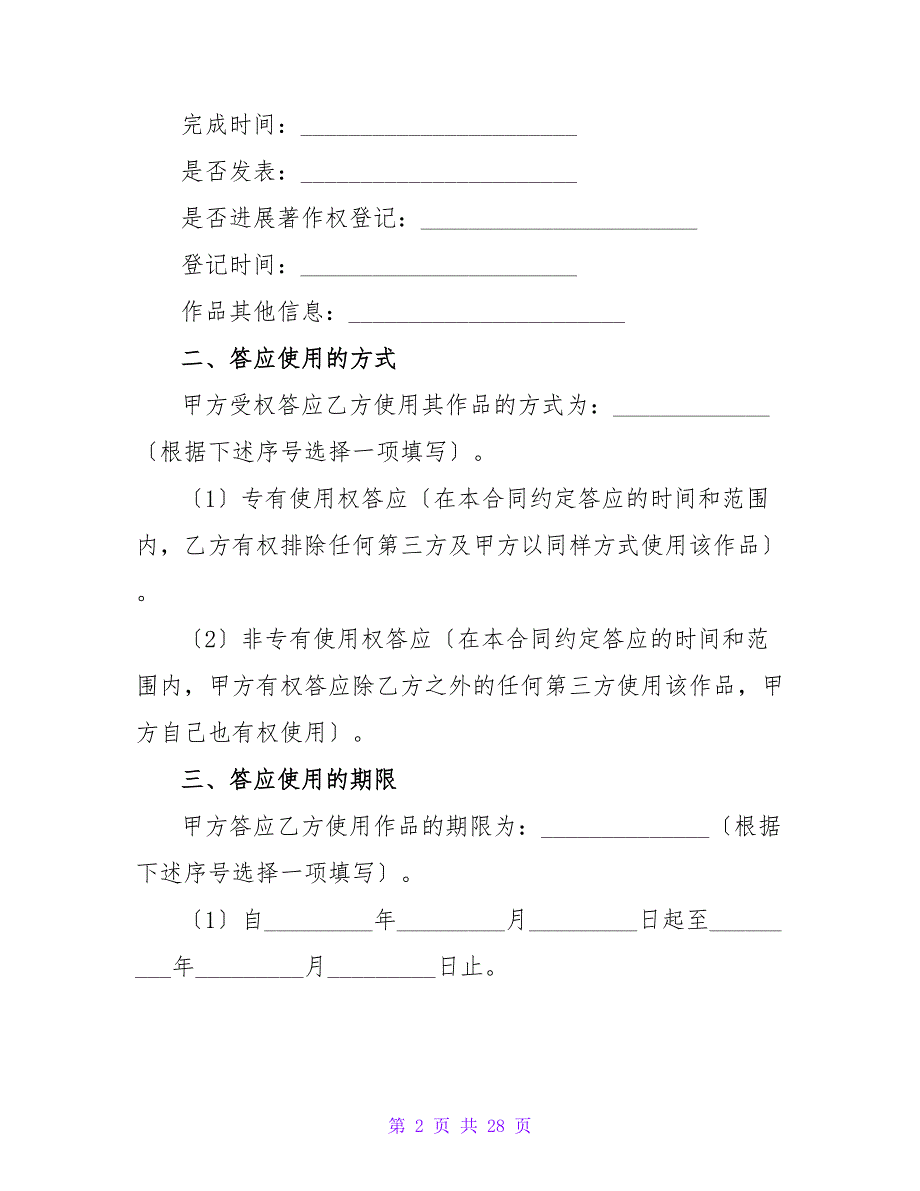 完成时间：_______________________
是否发表：_______________________
是否进展著作权登记：_______________________
登记时间：_______________________
作品其他信息：_______________________
二、答应使用的方式
甲方受权答应乙方使用其作品的方式为：_____________
〔根据下述序号选择一项填写〕。
〔1〕专有使用权答应〔在本合同约定答应的时间和范围
内，乙方有权排除任何第三方及甲方以同样方式使用该作品〕
。
〔2〕非专有使用权答应〔在本合同约定答应的时间和范
围内，甲方有权答应除乙方之外的任何第三方使用该作品，甲
方自己也有权使用〕。
三、答应使用的期限
甲方答应乙方使用作品的期限为：______________〔根据
下述序号选择一项填写〕。
〔1〕自_________年_________月_________日起至______
___年_________月_________日止。
第 2 页 共 28 页